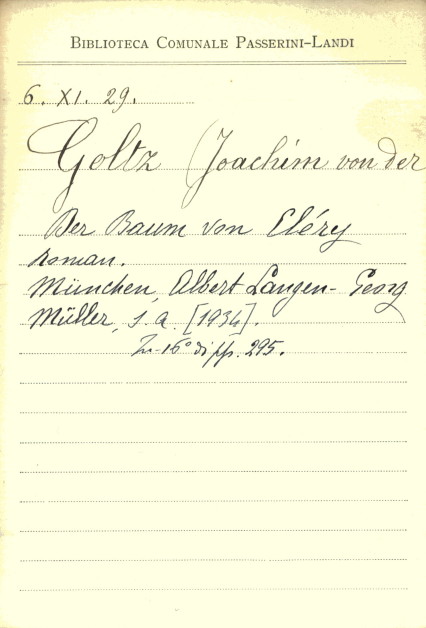 BIBLIOTECA COMUNALE PASSERINI-LANDI
6. XI. 29.
Goltz (Joachim von der
Der Baum von Cléry
Roman.
München, Albert Langen - Georg
Müller, s. a. [1934].
In-16° di pp. 295.